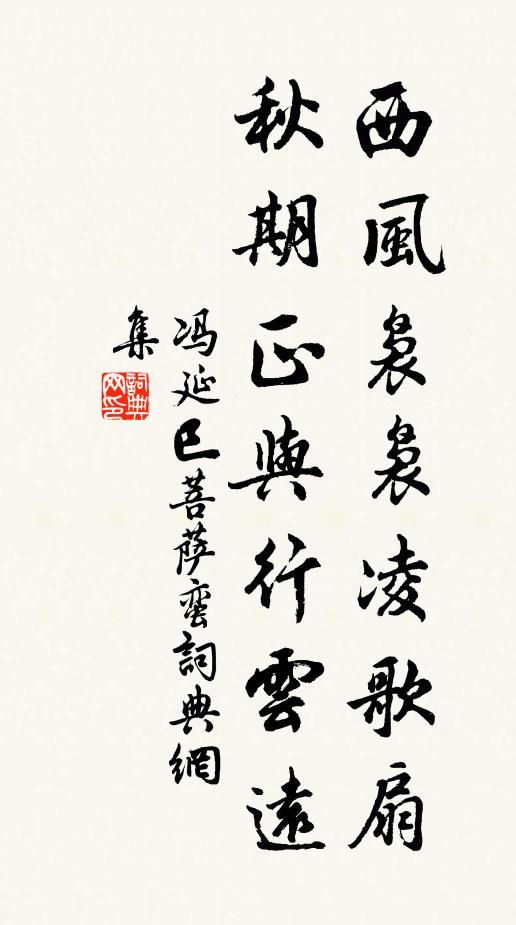 西風裊裊凌歌扇
秋期正與行雲遠
冯延巳菩萨蛮詞典網
集
詞典
网印